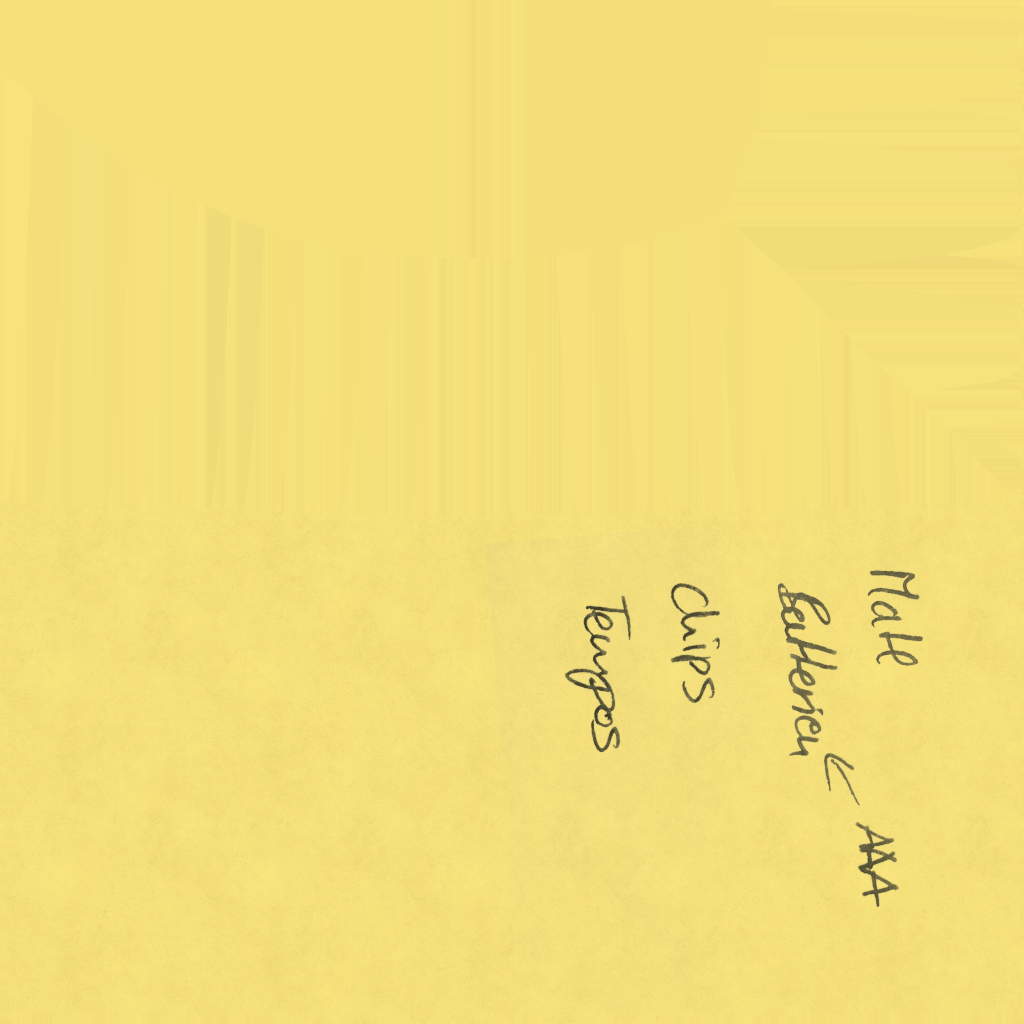 Mate
Batterien ← AAA
Chips
Tempos